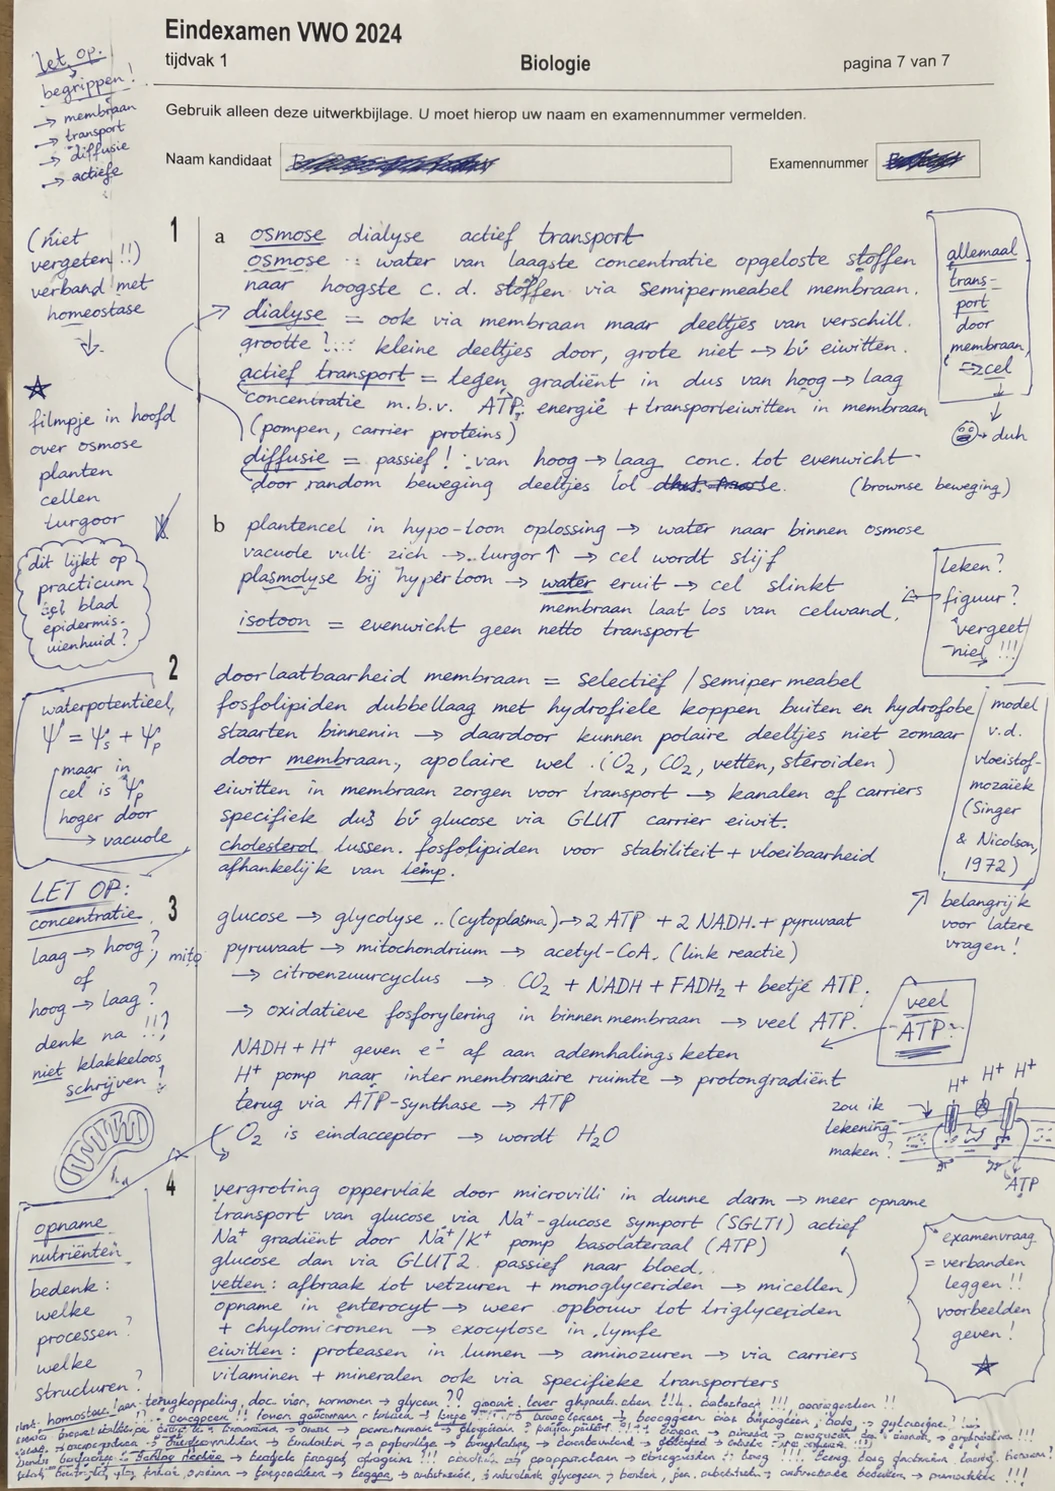 Eindexamen VWO 2024
tijdvak 1
Biologie
pagina 7 van 7
Gebruik alleen deze uitwerkbijlage. U moet hierop uw naam en examennummer vermelden.
Naam kandidaat
Examennummer
let op:
begrippen!
→ membraan
→ transport
→ diffusie
→ actiefe
(niet
vergeten!!)
verband met
homeostase
filmpje in hoofd
over osmose
planten
cellen
turgoor
dit lijkt op
practicum
blad
epidermis-
uienhuid?
1
a osmose dialyse actief transport
osmose : water van laagste concentratie opgeloste stoffen
naar hoogste c. d. stoffen via semipermeabel membraan.
dialyse = ook via membraan maar deeltjes van verschill.
grootte !... kleine deeltjes door, grote niet → bv eiwitten.
actief transport = tegen gradiënt in dus van hoog → laag
concentratie m.b.v. ATP: energie + transporteiwitten in membraan
(pompen, carrier proteins)
diffusie = passief! : van hoog → laag conc. tot evenwicht
door random beweging deeltjes lol
(brownse beweging)
allemaal
trans-
port
door
membraan,
⇒ cel
→ duh
b plantencel in hypo-toon oplossing → water naar binnen osmose
vacuole vult zich → turgor ↑ → cel wordt stijf
plasmolyse bij hypertoon → water eruit → cel slinkt
membraan laat los van celwand.
isotoon = evenwicht geen netto transport
teken?
figuur?
vergeet
niet !!!
2
doorlaatbaarheid membraan = selectief / semipermeabel
fosfolipiden dubbellaag met hydrofiele koppen buiten en hydrofobe
staarten binnenin → daardoor kunnen polaire deeltjes niet zomaar
door membraan, apolaire wel. (O₂, CO₂, vetten, steroiden)
eiwitten in membraan zorgen voor transport → kanalen of carriers
specifiek dus bv glucose via GLUT carrier eiwit.
cholesterol tussen fosfolipiden voor stabiliteit + vloeibaarheid
afhankelijk van temp.
waterpotentieel,
Ψ = Ψs + Ψp
maar in
cel is Ψp
hoger door
→ vacuole
model
v.d.
vloeistof-
mozaïek
(Singer
& Nicolson,
1972)
belangrijk
voor latere
vragen!
LET OP:
concentratie
laag → hoog?
of
hoog → laag?
denk na !!?
niet klakkeloos
schrijven!
3
glucose → glycolyse ..(cytoplasma) → 2 ATP + 2 NADH + pyruvaat
mito
pyruvaat → mitochondrium → acetyl-CoA. (link reactie)
→ citroenzuurcyclus → CO₂ + NADH + FADH₂ + beetje ATP.
→ oxidatieve fosforylering in binnenmembraan → veel ATP.
NADH + H⁺ geven e⁻ af aan ademhalingsketen
H⁺ pomp naar inter membranaire ruimte → protongradiënt
terug via ATP-synthase → ATP
O₂ is eindacceptor → wordt H₂O
veel
ATP
zou ik
tekening
maken?
H⁺ H⁺ H⁺
ATP
4
vergroting oppervlak door microvilli in dunne darm → meer opname
transport van glucose via Na⁺-glucose symport (SGLT1) actief
Na⁺ gradiënt door Na⁺/K⁺ pomp basolateraal (ATP)
glucose dan via GLUT2 passief naar bloed.
vetten: afbraak tot vetzuren + monoglyceriden → micellen)
opname in enterocyt → weer opbouw tot triglyceriden
+ chylomicronen → exocytose in lymfe
eiwitten: proteasen in lumen → aminozuren → via carriers
vitaminen + mineralen ook via specifieke transporters
opname
nutriënten
bedenk:
welke
processen?
welke
structuren?
examenvraag
= verbanden
leggen!!
voorbeelden
geven!
terugkoppeling, hormonen